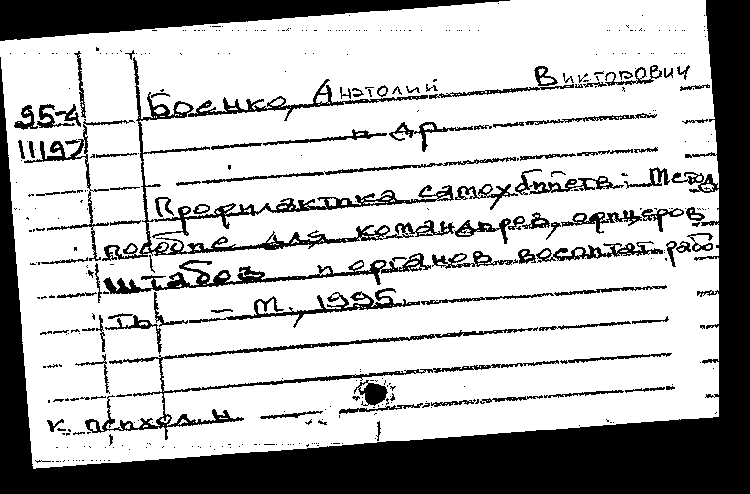 95-4
11197
Боенко, Анатолий Викторович
и др
Профилактика самоубийств: Метод
пособие для командиров, офицеров
штабов и органов воспитат. рабо-
ты. – М., 1995.
к. психол. н